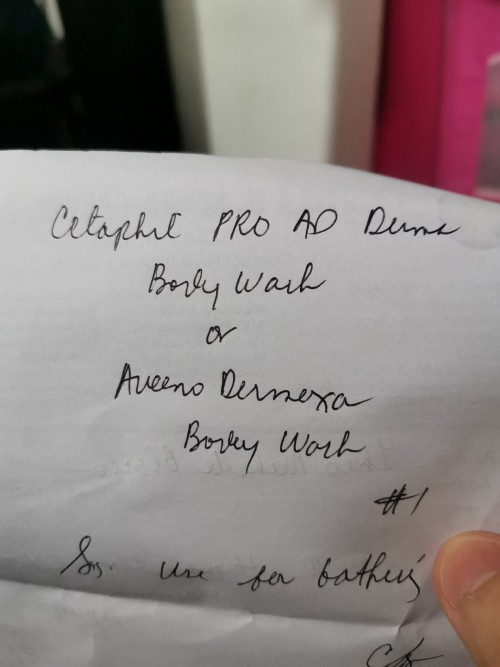 Cetaphil PRO AD Derma
Body Wash
or
Aveeno Dermexa
Body Wash
#1
Sig. use for bathing